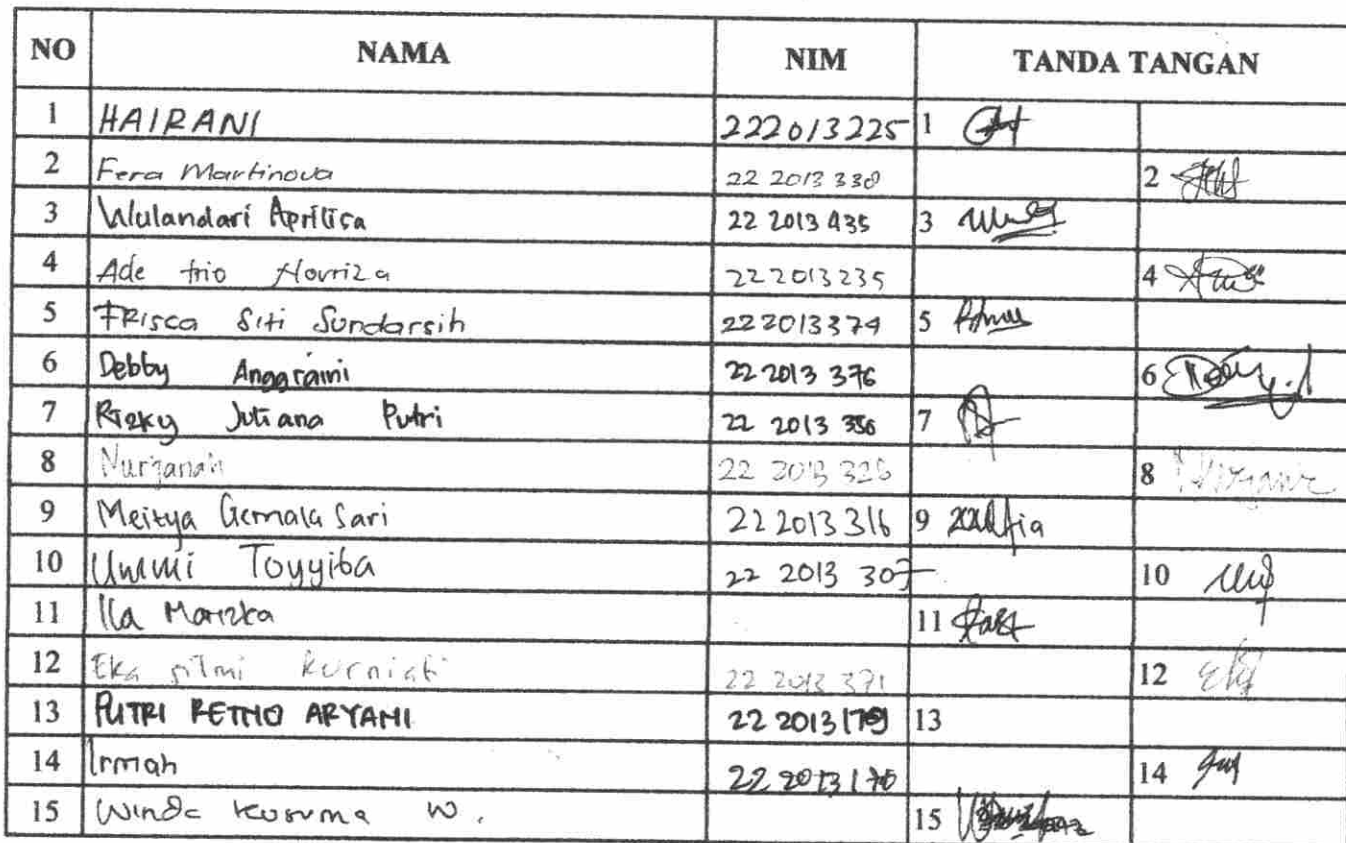 NO NAMA NIM TANDA TANGAN
1 HAIRANI 222013225 1
2 Fera Martinova 22 2013 330 2
3 Wulandari Aprilisa 22 2013 435 3
4 Ade trio Novriza 222013235 4
5 FRisca Siti Sundarsih 222013374 5
6 Debby Anggraini 22 2013 376 6
7 Rizky Juliana Putri 22 2013 356 7
8 Nurjanah 22 2013 326 8
9 Meitya Gemala Sari 22 2013 316 9
10 Ummi Toyyiba 22 2013 307 10
11 Ila Marizka 11
12 Eka silmi kurniati 22 2013 371 12
13 PUTRI RETNO ARYANI 22 2013 179 13
14 Irmah 22 2013 170 14
15 Winda Kusuma W. 15